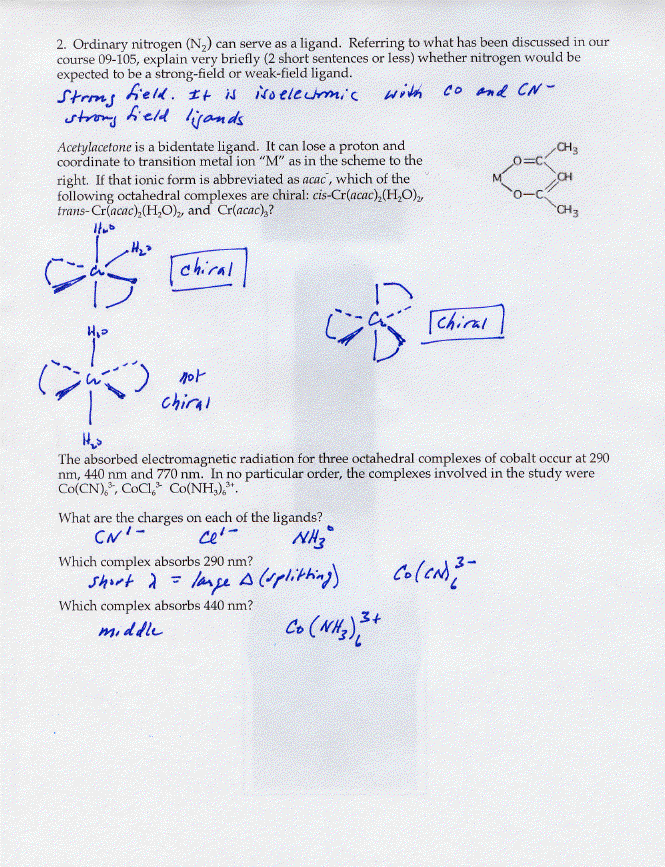 2. Ordinary nitrogen (N₂) can serve as a ligand. Referring to what has been discussed in our
course 09-105, explain very briefly (2 short sentences or less) whether nitrogen would be
expected to be a strong-field or weak-field ligand.
Strong field. It is isoelectronic with CO and CN-
strong field ligands
Acetylacetone is a bidentate ligand. It can lose a proton and
coordinate to transition metal ion "M" as in the scheme to the
right. If that ionic form is abbreviated as acac⁻, which of the
following octahedral complexes are chiral: cis-Cr(acac)₂(H₂O)₂,
trans-Cr(acac)₂(H₂O)₂, and Cr(acac)₃?
CH3
O=C
M
CH
O-C
CH3
H₂O
H₂O
Cr
chiral
Cr
chiral
H₂O
Cr
not
chiral
H₂O
The absorbed electromagnetic radiation for three octahedral complexes of cobalt occur at 290
nm, 440 nm and 770 nm. In no particular order, the complexes involved in the study were
Co(CN)₆³⁻, CoCl₆³⁻ Co(NH₃)₆³⁺.
What are the charges on each of the ligands?
CN¹⁻ Cl¹⁻ NH₃⁰
Which complex absorbs 290 nm?
short λ = large Δ (splitting) Co(CN)₆³⁻
Which complex absorbs 440 nm?
middle Co(NH₃)₆³⁺